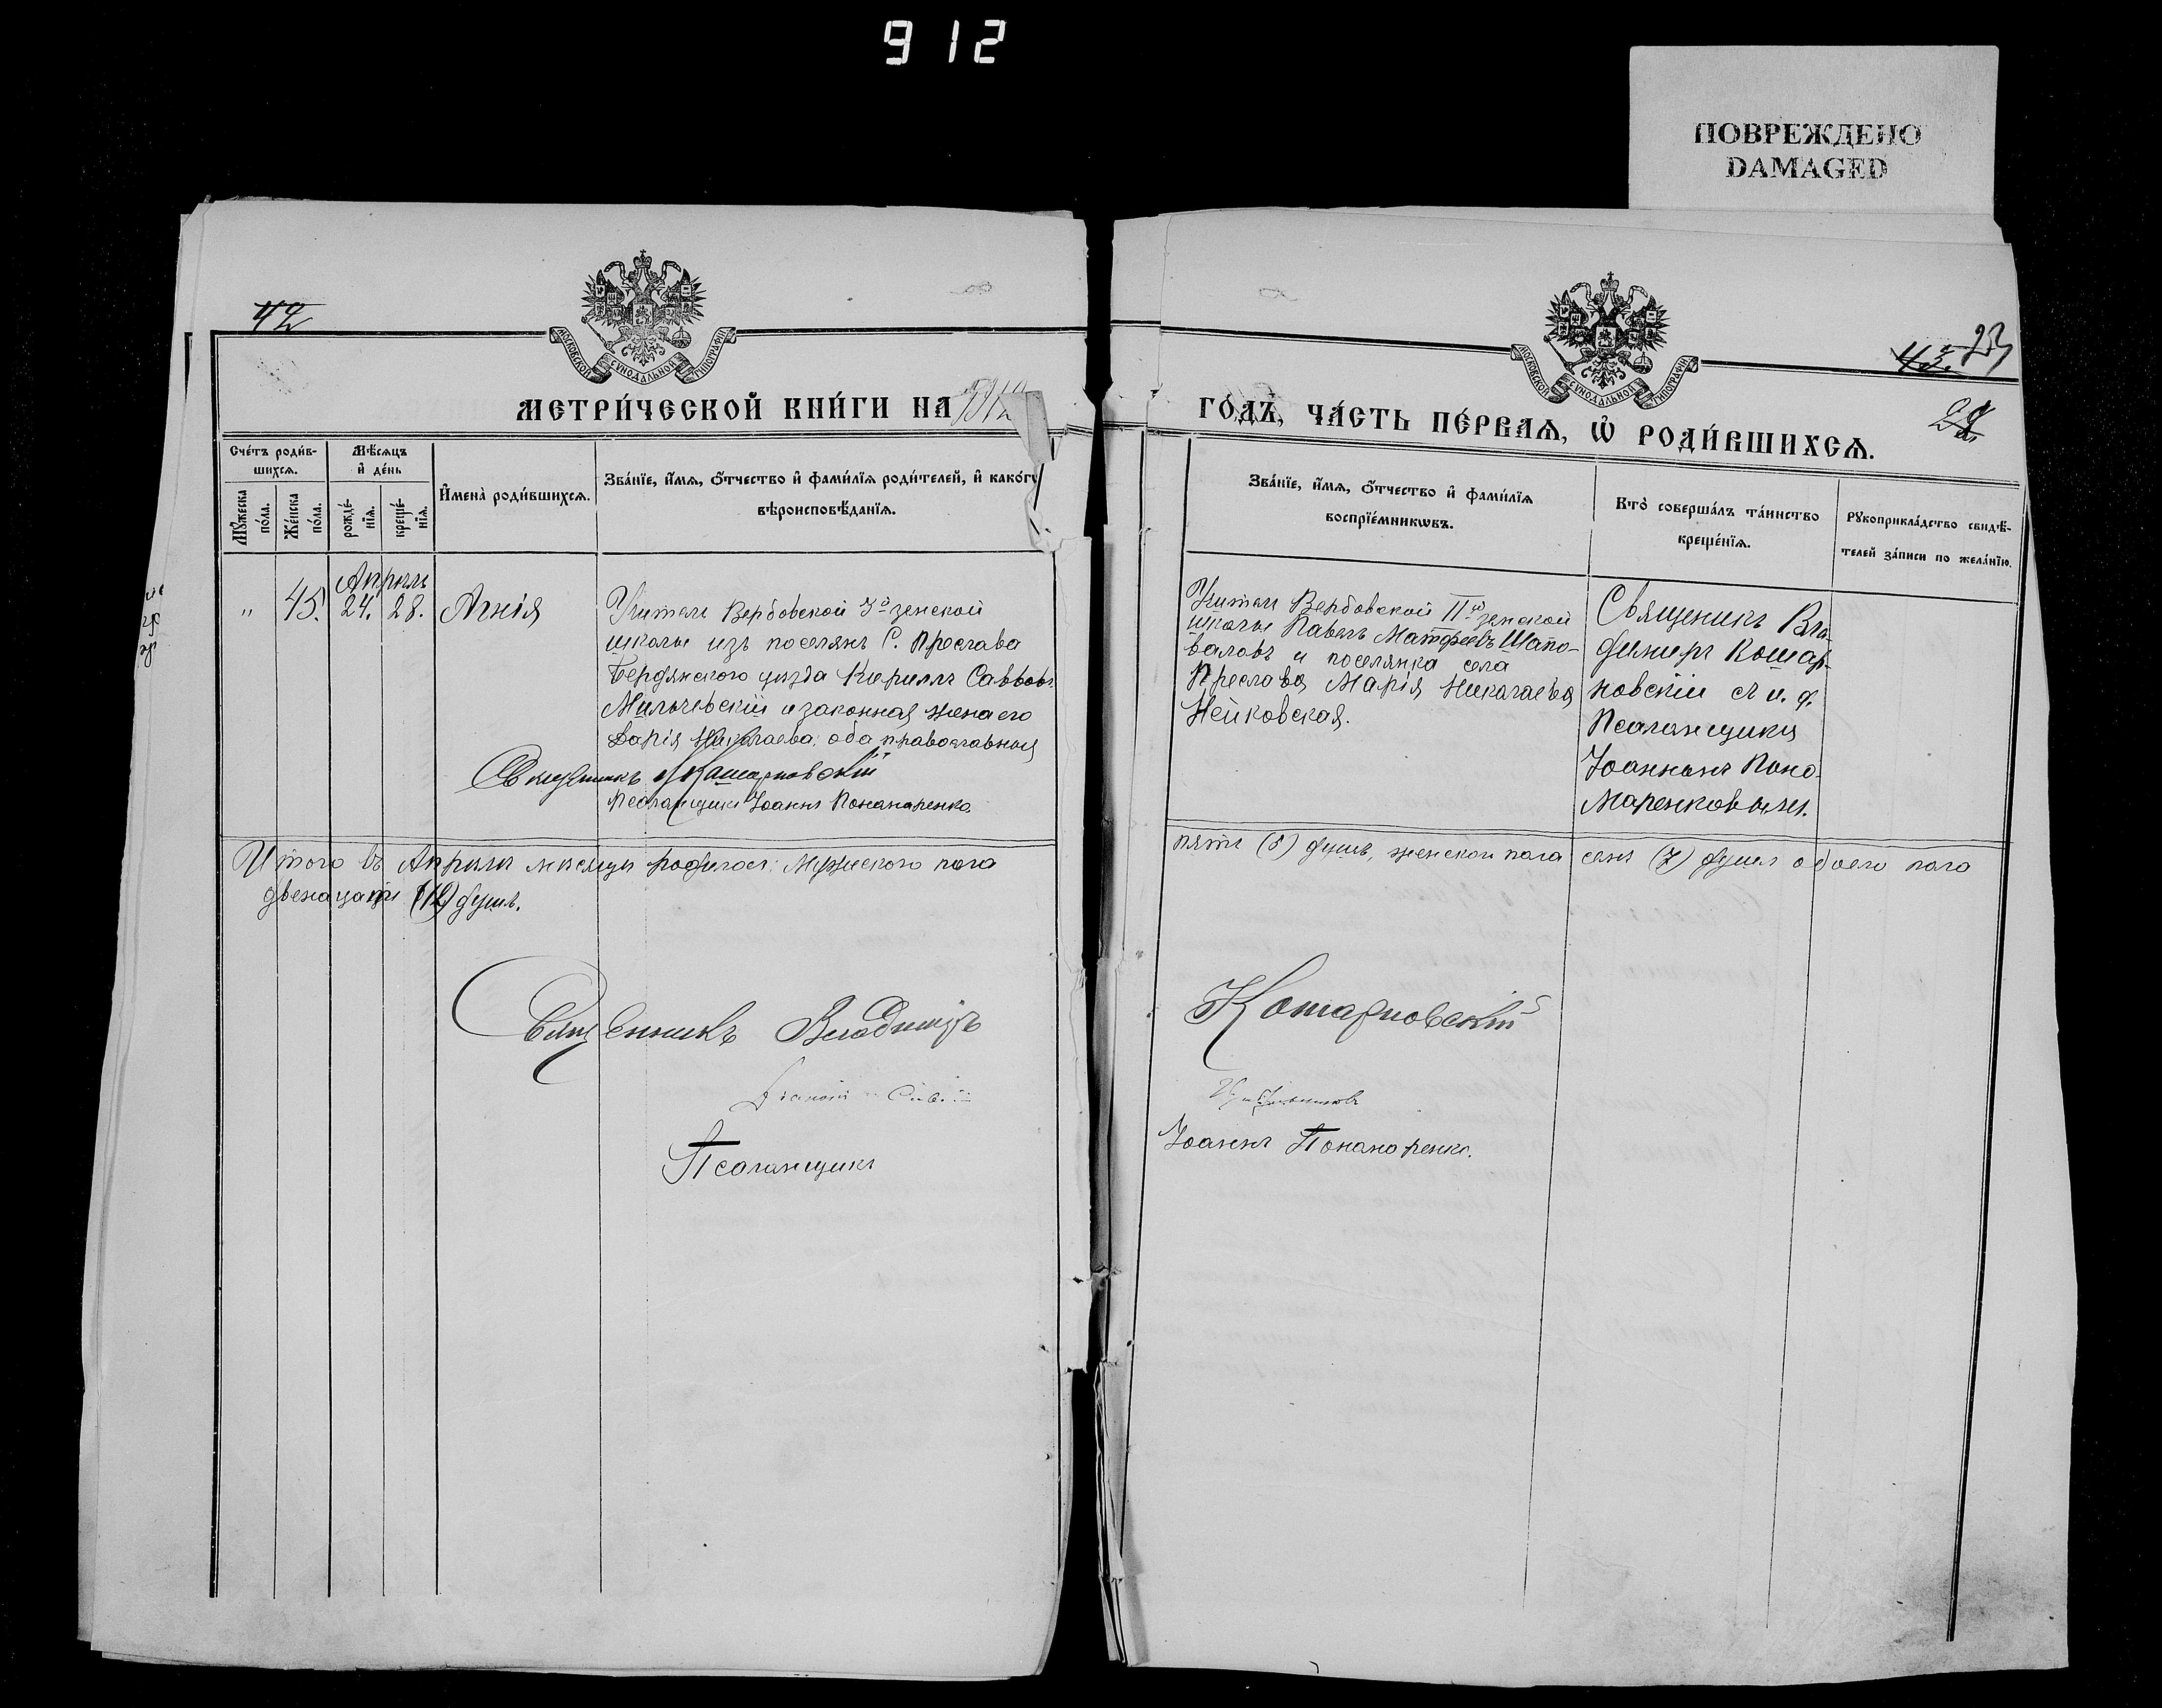 912
ПОВРЕЖДЕНО
DAMAGED
42
МОСКОВСКОЙ СѴНОДАЛЬНОЙ ТИПОГРАФІИ
МЕТРИ́ЧЕСКОЙ КНИ́ГИ НА 1912
Сче́тъ роди́в-
шихсѧ.
Мѣ́сѧцъ
и҆ де́нь
Мꙋ́жеска
по́ла.
Же́нска
по́ла.
рожде́-
нїѧ.
креще́-
нїѧ.
И҆мена̀ роди́вшихсѧ.
Зва́нїе, и҆́мѧ, ѻ҆́тчество и҆ фами́лїѧ роди́телей, и҆ како́гѡ
вѣроисповѣ́данїѧ.
Апрѣль
" 45. 24. 28. Агнія
Учитель Вербовской 3й земской
школы изъ поселянъ С. Преслава
Бердянского уѣзда Кириллъ Саввовъ
Мильчевскій и законная жена его
Дарія Николаева, оба православныя
Священникъ В Кошарновскій
Псаломщикъ Іоаннъ Понамаренко.
Итого въ Апрѣлѣ мѣсяцѣ родилось: Мужеского пола
двенацать (12) душъ.
Священникъ Владиміръ
Псаломщикъ
МОСКОВСКОЙ СѴНОДАЛЬНОЙ ТИПОГРАФІИ
43. 23
ГО́ДЪ, ЧА́СТЬ ПЕ́РВАѦ, Ѡ҆ РОДИ́ВШИХСѦ.
Зва́нїе, и҆́мѧ, ѻ҆́тчество и҆ фами́лїѧ
воспрїе́мникѡвъ.
Кто̀ соверша́лъ та́инство
креще́нїѧ.
Рꙋкоприкла́дство свидѣ́-
телей за́писи по жела́нїю.
Учитель Вербовской IIй земской
школы Павелъ Матфеевъ Шапо-
валовъ и поселянка села
Преслава Марія Николаева
Нейковская.
Священикъ Вла-
димиръ Кошар-
новскій съ и. д.
Псаломщика
Іоанномъ Поно-
Маренковымъ.
пять (5) душъ, женскои пола семь (7) душъ обоего пола
Кошарновскій
Іоаннъ Понамаренко.